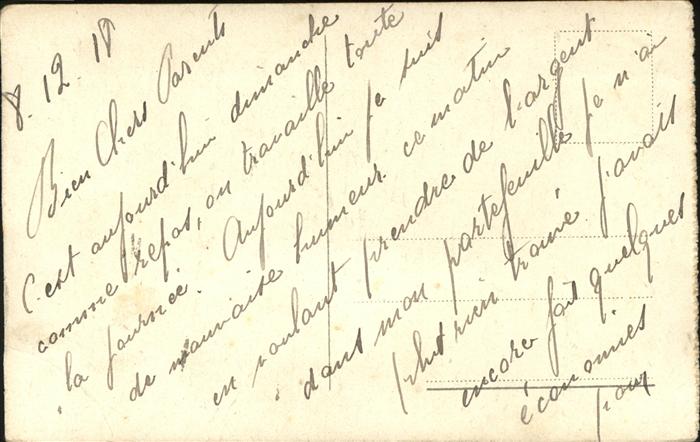 8.12.18
Bien Chers Parents
C'est aujourd'hui dimanche
comme repos, on travaille toute
la journée. Aujourd'hui je suis
de mauvaise humeur. ce matin
en voulant prendre de l'argent
dans mon portefeuille je n'ai
plus rien trouvé. J'avais
encore fait quelques
économies
pour